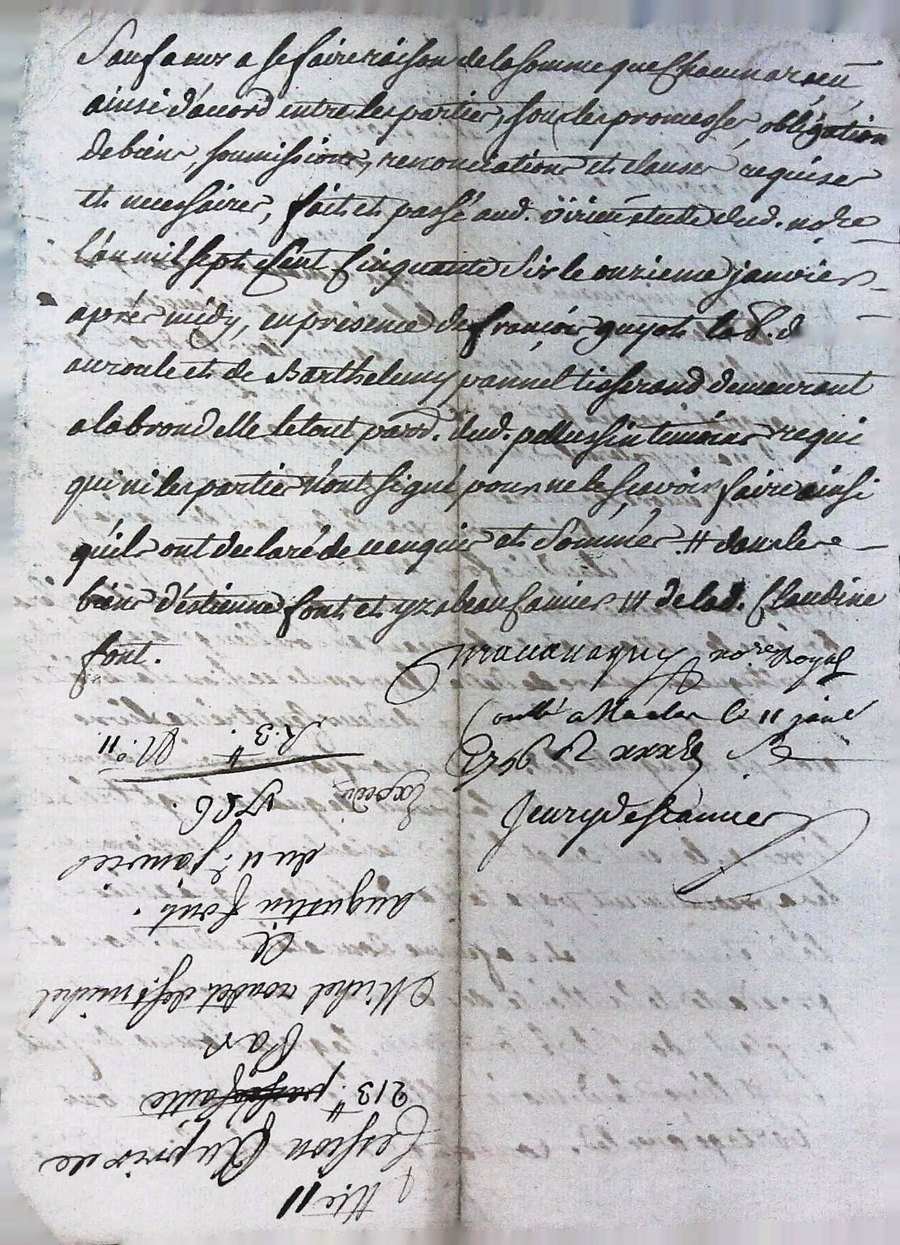 Sauf a eux a se faire raison de la somme que Chacun a receu
ainsi d'accord entre les parties, sous les promesses, obligation
de biens, soumissions, renonciations et clauses requises
et necessaires, fait et passé aud. estude dud. nore
l'an mil sept Cent Cinquante Six le onzieme janvier
aprés midy, en presence de françois guyot
et de Barthelemy pannel tisserand demeurant
a la brondelle le tout parr. dud. temoins requi
qui ni les parties n'ont signé pour ne le scavoir faire ainsi
qu'ils ont declaré de ce enquis et Sommés # dans les
biens d'estienne font et yzabeau /// de lad. Claudine
font.
no.re Royal
Contlé a le 11 janv
1756 R
Michel de st michel
a
augustin font.
du 11e Janvier
1756.
Expedié
R. 3. # No. 11
Cession Au prix de
213 # faitte
Par